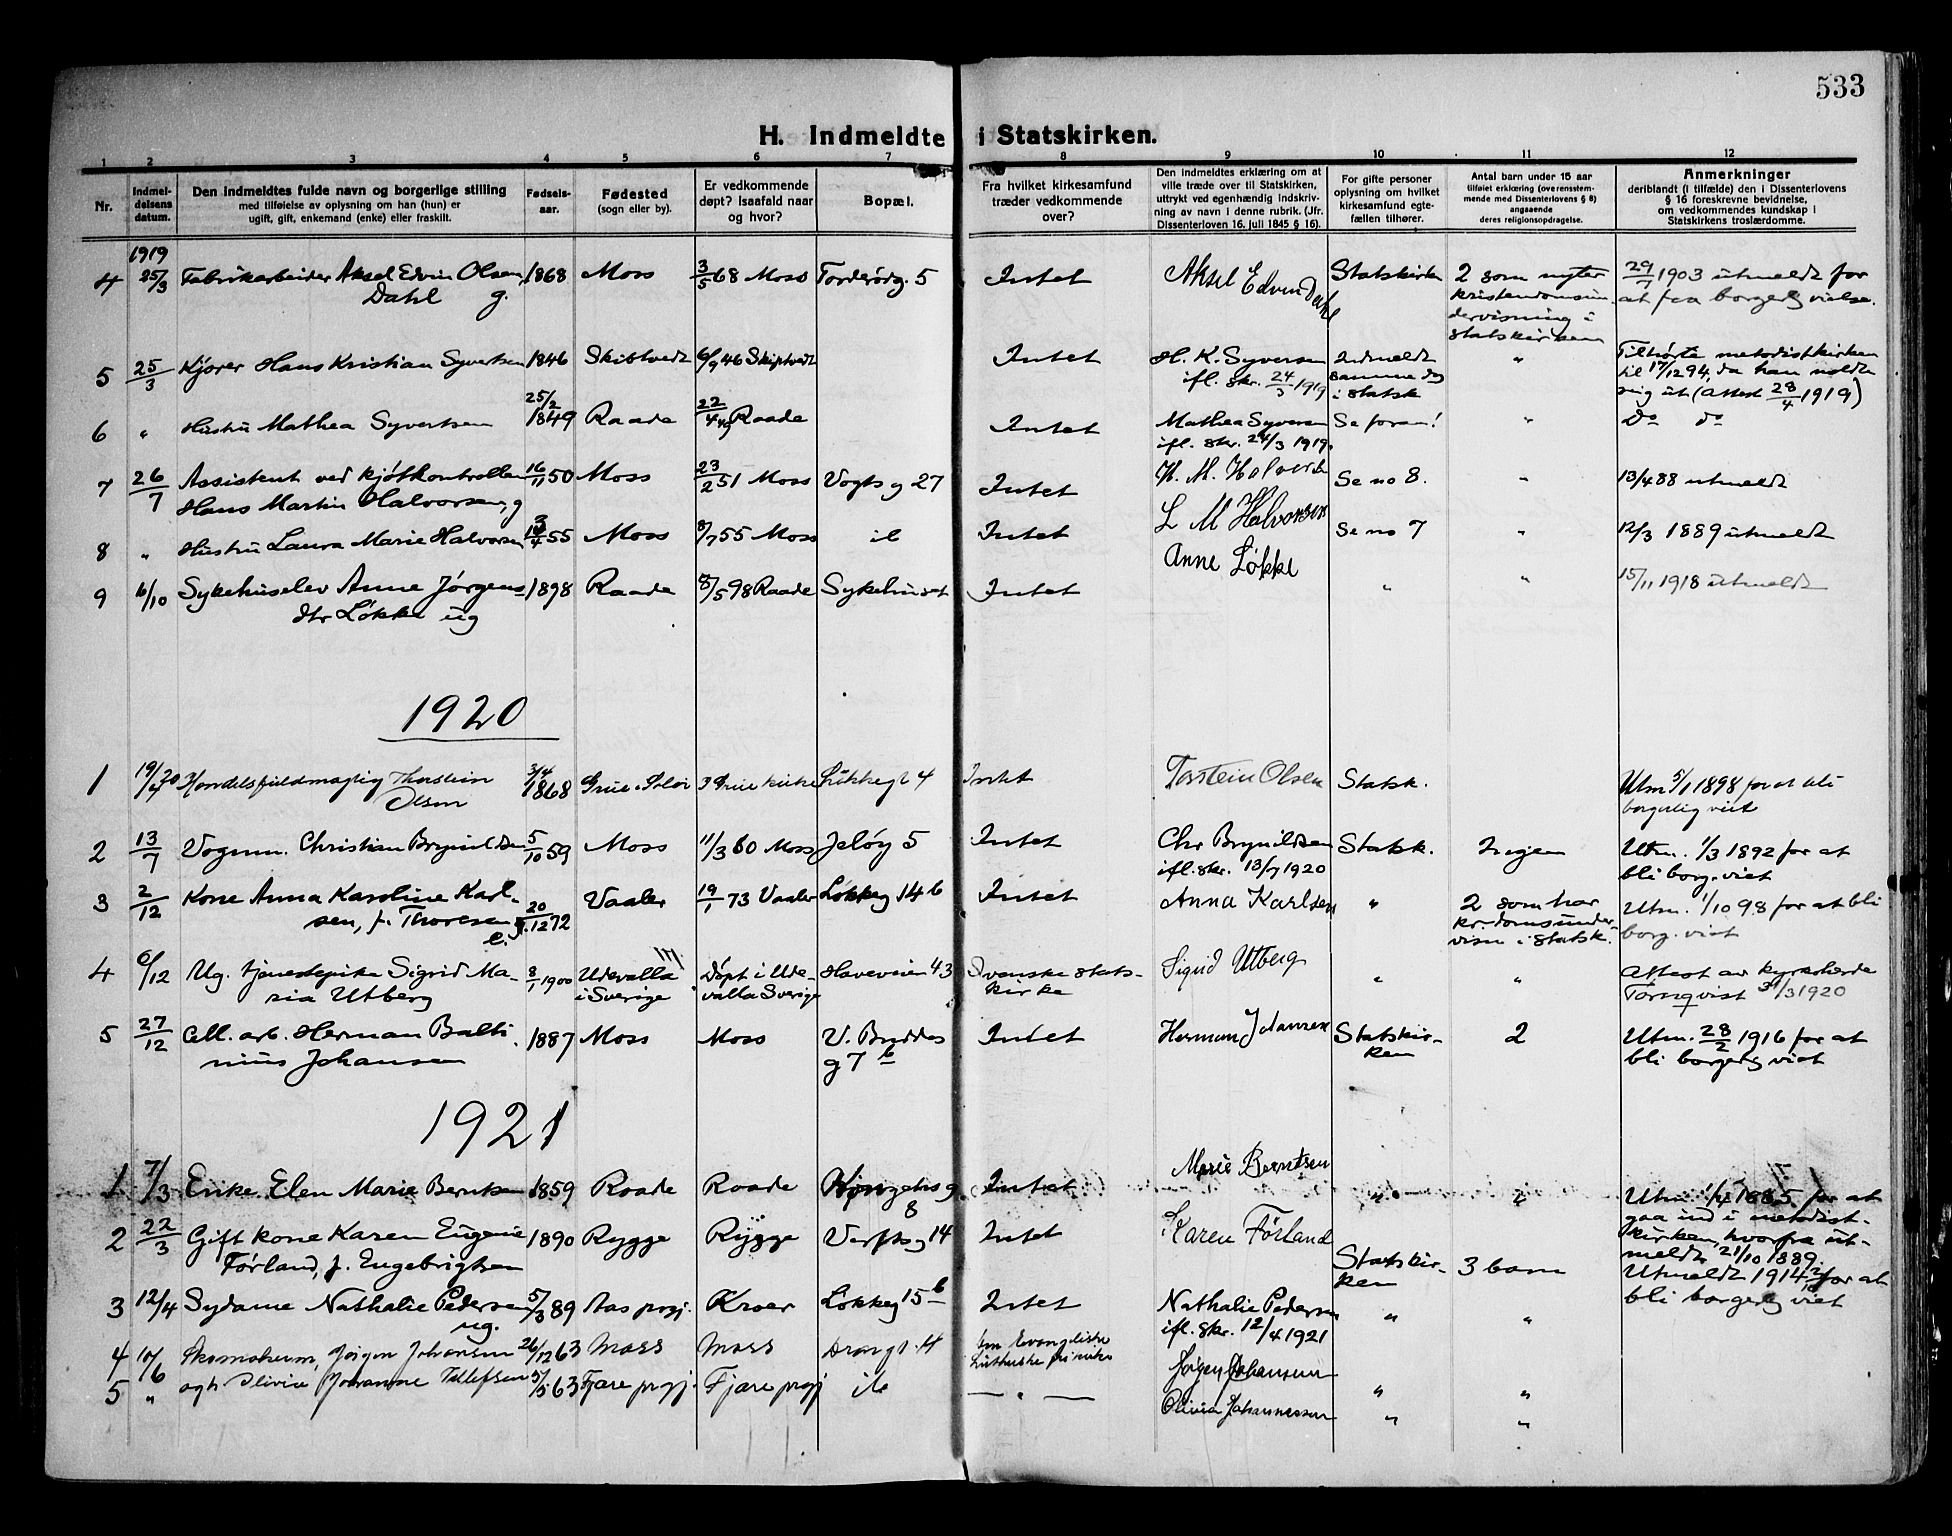 533
H. Indmeldte i Statskirken.
1 2 3 4 5 6 7 8 9 10 11 12
Nr.
Indmel-
delsens
datum.
Den indmeldtes fulde navn og borgerlige stilling
med tilføielse av oplysning om han (hun) er
ugift, gift, enkemand (enke) eller fraskilt.
Fødsels-
aar.
Fødested
(sogn eller by).
Er vedkommende
døpt? Isaafald naar
og hvor?
Bopæl.
Fra hvilket kirkesamfund
træder vedkommende
over?
Den indmeldtes erklæring om at
ville træde over til Statskirken,
uttrykt ved egenhændig indskriv-
ning av navn i denne rubrik. (Jfr.
Dissenterloven 16. juli 1845 § 16).
For gifte personer
oplysning om hvilket
kirkesamfund egte-
fællen tilhører.
Antal barn under 15 aar
tilføiet erklæring (overensstem-
mende med Dissenterlovens § 8)
angaaende
deres religionsopdragelse.
Anmerkninger
deriblandt (i tilfælde) den i Dissenterlovens
§ 16 foreskrevne bevidnelse,
om vedkommendes kundskap i
Statskirkens troslærdomme.
1919
4 25/3 Fabrikarbeider Aksel Edvin Olsen 1868 Moss 3/5 68 Moss Torderødg. 5 Intet Aksel Edvin Dahl Statskirken 2 som nyter 29/7 1903 utmeldt for
Dahl g. kristendomsun at faa borgerlig vielse.
dervisning i
statskirken
5 25/3 Kjører Hans Kristian Syvertsen 1846 Skibtvedt 6/9 46 Skiptvedt Intet H. K. Syversen Indmeldt " Tilhørte metodistkirken
ifl. skr. 24/3 1919 samme dag til 17/12 94, da han meldte
i statsk sig ut (attest 28/4 1919)
6 " Hustru Mathea Syvertsen 25/2 1849 Raade 22/4 49 Raade Intet Mathea Syversen Se foran! " Do do
ifl. skr. 24/3 1919.
7 26/7 Assistent ved kjøtkontrollen 16/11 50 Moss 23/2 51 Moss Vogtsg 27 Intet H. M. Halvorsen Se no 8. " 13/4 88 utmeldt
Hans Martin Halvorsen, g
8 " Hustru Laura Marie Halvorsen 55 Moss 8/7 55 Moss il Intet L M Halvorsen Se no 7 " 12/3 1889 utmeldt
9 6/10 Sykehuselev Anne Jørgens 1898 Raade 8/5 98 Raade Sykehuset Intet Anne Løkke " " 15/11 1918 utmeldt
dtr Løkke ug
1920
1 19/ 20 Handelsfuldmægtig Thorstein 3/4 1868 Grue Solør Grue kirke Løkkegt 4 Intet Torstein Olsen Statsk. Utm 5/1 1898 for at bli
Olsen borgerlig viet
2 13/7 Vognm. Christian Brynildsen 5/10 59 Moss 11/3 60 Moss Jeløy 5 Intet Chr Brynildsen Statsk. Ingen Utm. 1/3 1892 for at
ifl. skr. 13/7 1920 bli borg. viet
3 2/12 Kone Anna Karoline Karl- 20/12 72 Vaaler 19/1 73 Vaaler Løkkeg 14 b Intet Anna Karlsen " 2 som har Utm. 1/10 98 for at bli
sen, f. Thoresen g. kr. domsunder borg. viet
visn i statsk.
4 6/12 Ug. tjenestepike Sigrid Ma- 8/1 1900 Udevalla Døpt i Ude- Haveveien 43 Svenske stats- Sigrid Utberg " " Attest av kyrkoherde
ria Utberg i Sverige valla Sverige kirke Törnqvist 31/3 1920
5 27/12 All. arb. Herman Balti 1887 Moss Moss V. Buddes Intet Herman Johansen Statskir- 2 Utm. 28/2 1916 for at
nius Johansen g 7 b ken bli borgerlig viet
1921
1 7/3 Enke Elen Marie Berntsen 1859 Raade Raade Kongensg Intet Marie Berntsen " " Utm. 1/4 1885 for at
8 gaa ind i metodist-
kirken, hvorfra ut-
meldt 21/10 1889.
2 22/3 Gift kone Karen Eugenie 1890 Rygge Rygge Verftsg 14 Intet Karen Førland Statskir- 3 barn Utmeldt 1914 2/10 for at
Førland, f. Engebrigtsen ken bli borgerlig viet
3 12/4 Sydame Nathalie Pedersen 5/3 89 Aas prgj. Kroer Løkkeg 15 b Intet Nathalie Pedersen " "
ug. ifl. skr. 12/4 1921
4 10/6 Skomakerm, Jørgen Johansen 26/12 63 Moss Moss Drongt. 4 Den Evangeliske Jørgen Johansen " "
Lutherske frikirke
5 " ogh. Olivia Johanne Tellefsen 5/5 63 Fjære prgj. Fjære prgj ile — " — Olivia Johannessen " "